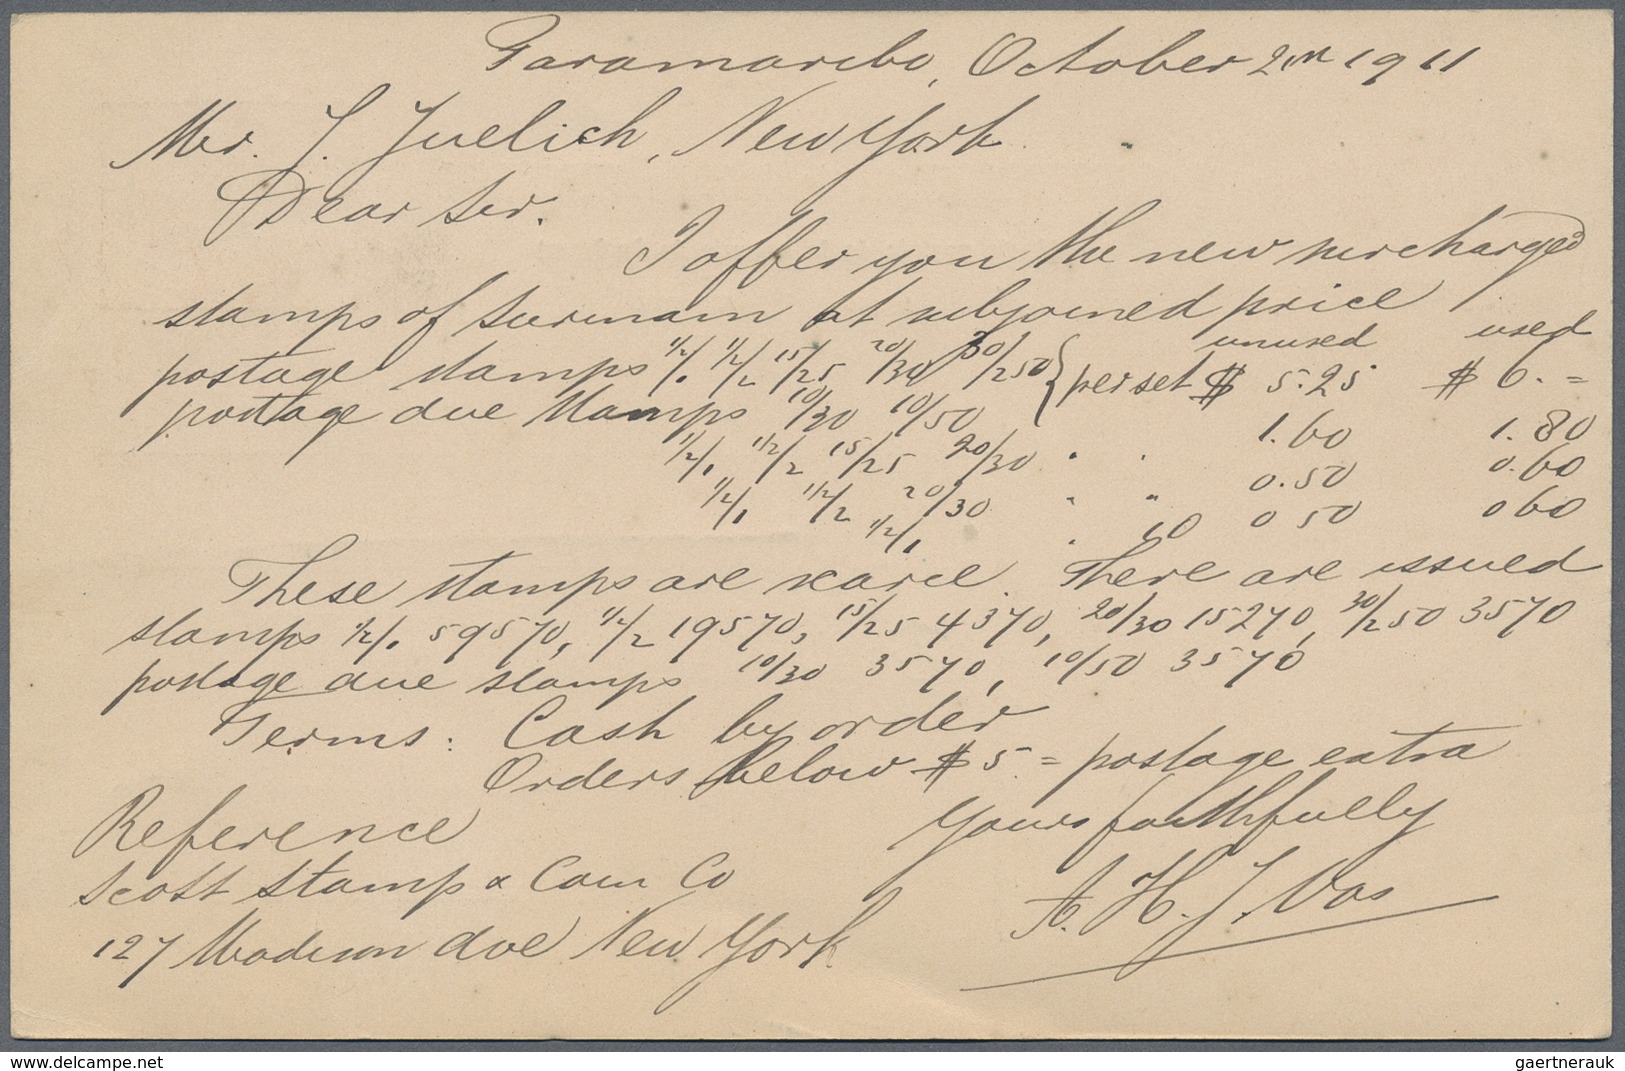 Paramaribo, October 2nd 1911
Mr. J. Juelich, New York.
Dear Sir.
I offer you the new surcharged
stamps of Surinam at subjoined price
unused used
postage stamps ½/1 ½/2 15/25 20/30 30/250 } per set $ 5.25 $ 6.=
postage due stamps 10/30 10/50
½/1 ½/2 15/25 20/30 " " 1.60 1.80
½/1 ½/2 20/30 " " 0.50 0.60
½/1 " 10 0 50 0 60
These stamps are scarce. There are issued
stamps ½/1 59570, ½/2 19570, 15/25 4370, 20/30 15270, 30/250 3570
postage due stamps 10/30 3570, 10/50 3570
Terms: Cash by order
Orders below $ 5.= postage extra
Reference Yours faithfully
Scott Stamp & Coin Co A. H. J. Vas
127 Madison ave New York
www.delcampe.net
gaertnerauk